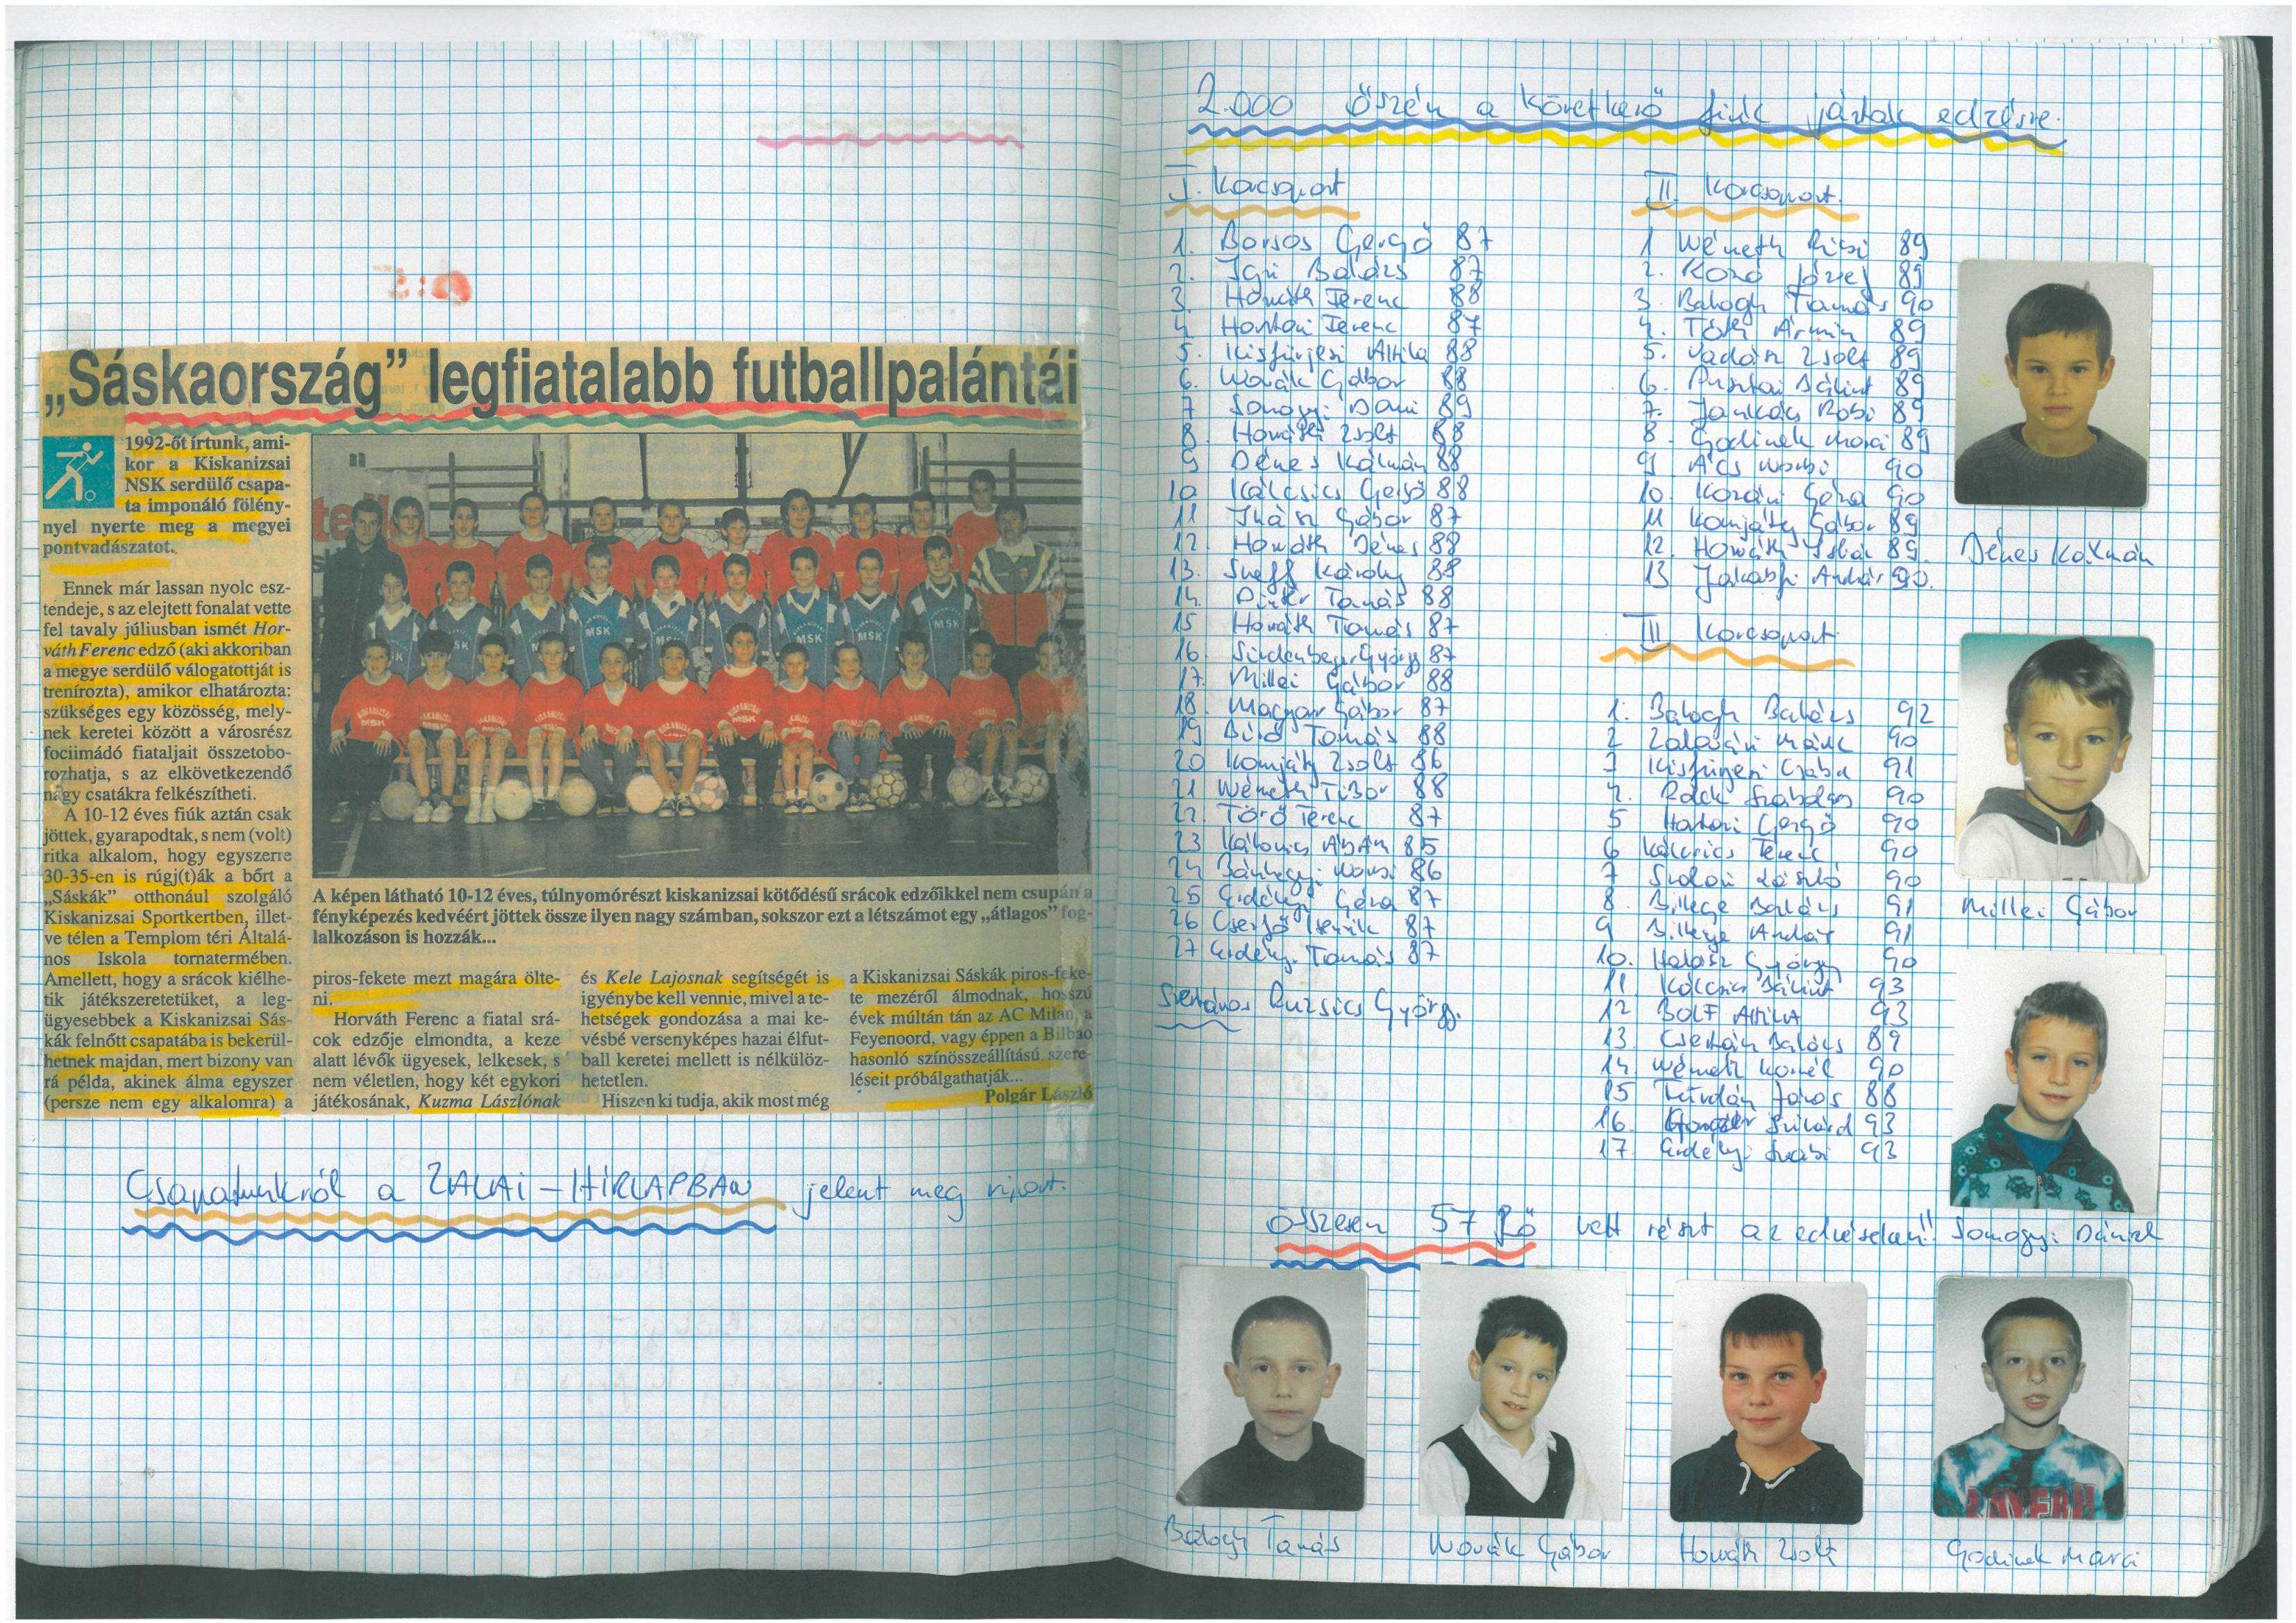 „Sáskaország” legfiatalabb futballpalántái
1992-őt írtunk, ami-
kor a Kiskanizsai
NSK serdülő csapa-
ta imponáló fölény-
nyel nyerte meg a megyei
pontvadászatot.
Ennek már lassan nyolc esz-
tendeje, s az elejtett fonalat vette
fel tavaly júliusban ismét Hor-
váth Ferenc edző (aki akkoriban
a megye serdülő válogatottját is
trenírozta), amikor elhatározta:
szükséges egy közösség, mely-
nek keretei között a városrész
fociimádó fiataljait összetobo-
rozhatja, s az elkövetkezendő
nagy csatákra felkészítheti.
A 10-12 éves fiúk aztán csak
jöttek, gyarapodtak, s nem (volt)
ritka alkalom, hogy egyszerre
30-35-en is rúgj(t)ák a bőrt a
„Sáskák” otthonául szolgáló
Kiskanizsai Sportkertben, illet-
ve télen a Templom téri Általá-
nos Iskola tornatermében.
Amellett, hogy a srácok kiélhe-
tik játékszeretetüket, a leg-
ügyesebbek a Kiskanizsai Sás-
kák felnőtt csapatába is bekerül-
hetnek majdan, mert bizony van
rá példa, akinek álma egyszer
(persze nem egy alkalomra) a
MSK
MSK
MSK
MSK
MSK
A képen látható 10-12 éves, túlnyomórészt kiskanizsai kötődésű srácok edzőikkel nem csupán a
fényképezés kedvéért jöttek össze ilyen nagy számban, sokszor ezt a létszámot egy „átlagos” fog-
lalkozáson is hozzák...
piros-fekete mezt magára ölte-
ni.
Horváth Ferenc a fiatal srá-
cok edzője elmondta, a keze
alatt lévők ügyesek, lelkesek, s
nem véletlen, hogy két egykori
játékosának, Kuzma Lászlónak
és Kele Lajosnak segítségét is
igénybe kell vennie, mivel a te-
hetségek gondozása a mai ke-
vésbé versenyképes hazai élfut-
ball keretei mellett is nélkülöz-
hetetlen.
Hiszen ki tudja, akik most még
a Kiskanizsai Sáskák piros-feke-
te mezéről álmodnak, hosszú
évek múltán tán az AC Milan, a
Feyenoord, vagy éppen a Bilbao
hasonló színösszeállítású szere-
léseit próbálgathatják...
Polgár László
Csapatunkról a ZALAI-HÍRLAPBAN jelent meg riport.
2.000 őszén a következő fiúk jártak edzésre.
I. Korcsoport
1. Borsos Gergő 87
2. Igri Balázs 87
3. Horváth Ferenc 88
4. Hortai Ferenc 87
5. Kisfürjesi Attila 88
6. Novák Gábor 88
7 Somogyi Dani 89
8. Horváth Zsolt 88
9 Dénes Kálmán 88
10 Kálcsics Gergő 88
11 Juhász Gábor 87
12. Horváth Dénes 88
13. Károly 88
14. Tamás 88
15 Horváth Tamás 87
16. György 87
17. Millei Gábor 88
18. Magyar Gábor 87
19 Bíró Tamás 88
20 Komjáty Zsolt 86
21 Németh Tibor 88
22. Törő Ferenc 87
23 Ádám 85
24 86
25 Erdélyi Géza 87
26 Cserfő 87
27 Erdélyi Tamás 87
Szertáros Ruzsics György.
II Korcsoport.
1 Németh Ricsi 89
2. József 89
3. Balogh Tamás 90
4. Tóth Ármin 89
5. Vadász Zsolt 89
6. Pusztai Bálint 89
7. Robi 89
8. Godinek Marci 89
9 Ács Norbi 90
10. Géza 90
11 Komjáty Gábor 89
12. Horváth 89.
13 Jakabfi András 90.
III Korcsoport
1. Balogh Balázs 92
2 Zalavári Márk 90
3 Kisfürjesi Csaba 91
4. Rack Szabolcs 90
5 Hortai Gergő 90
6 Kálcsics Ferenc 90
7 László 90
8. Billege Balázs 91
9 Billege András 91
10. Halász György 90
11 Kálcsics Bálint 93
12 BOLF Attila 93
13. Csertán Balázs 89
14 Németh Kornél 90
15 János 88
16. Szilárd 93
17. Erdélyi Szabi 93
összesen 57 fő vett részt az edzéseken!!
Dénes Kálmán
Millei Gábor
Somogyi Dániel
Balogh Tamás
Novák Gábor
Horváth Zsolt
Godinek Marci